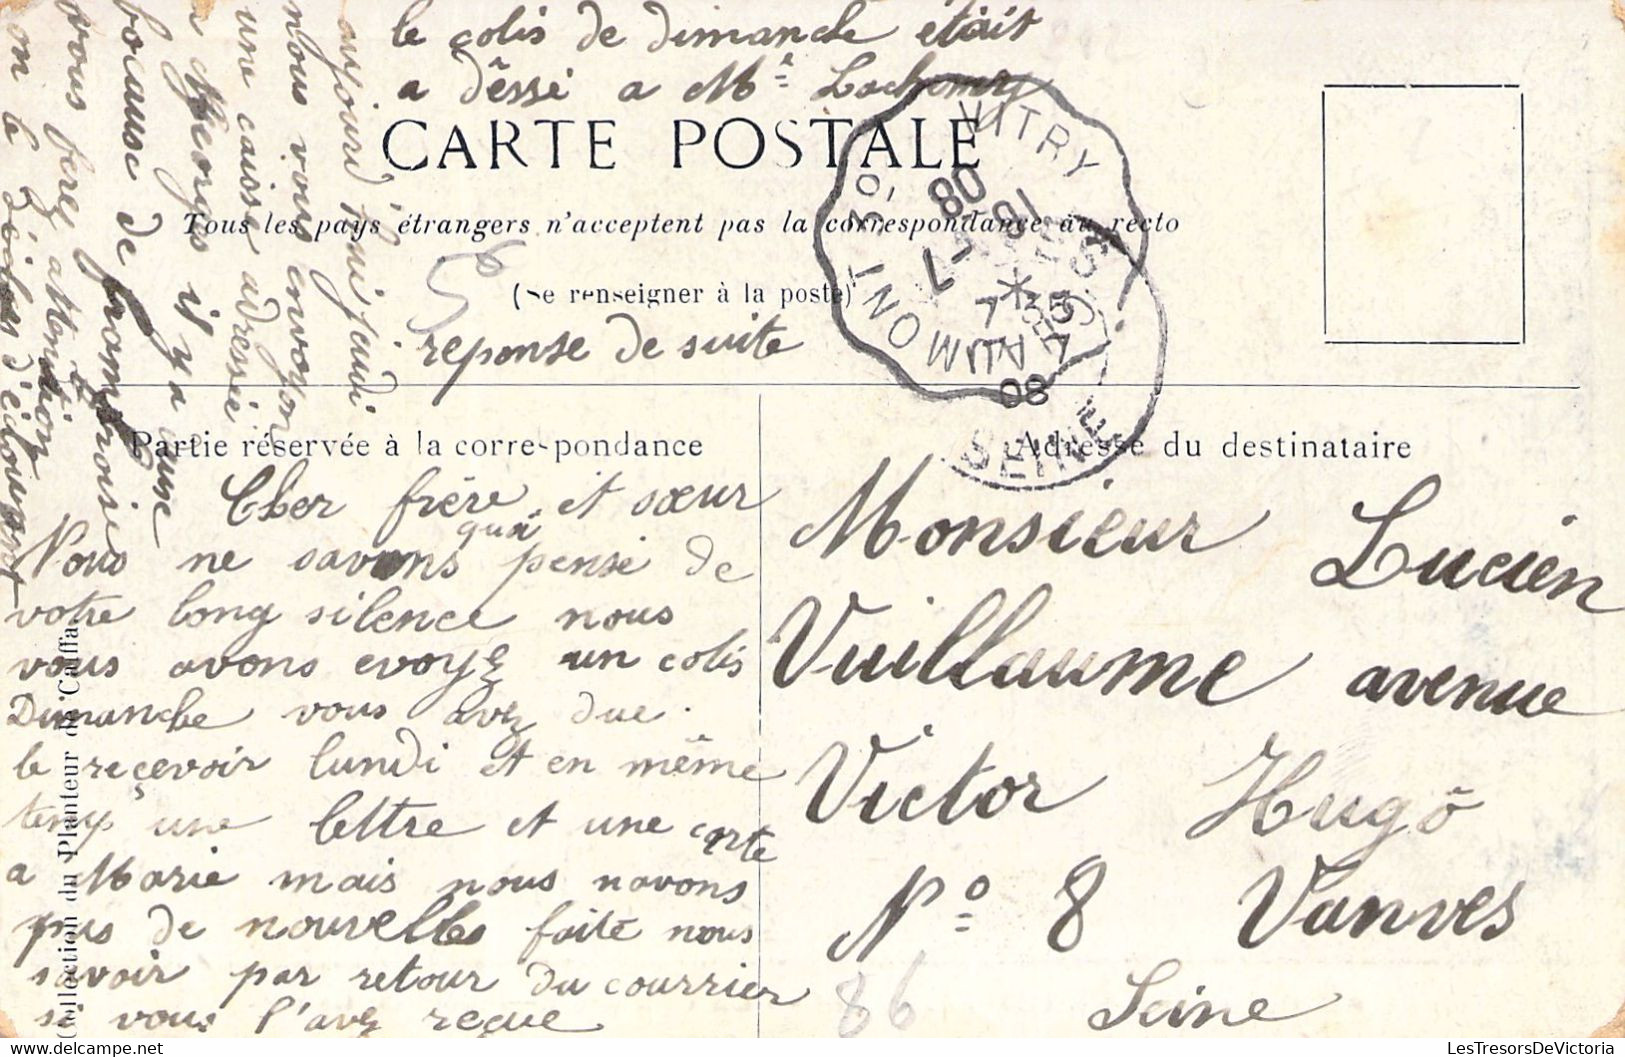 le colis de dimanche était
a dêssé a Mᵉ
CARTE POSTALE
Tous les pays étrangers n'acceptent pas la correspondance au recto
(Se renseigner à la poste)
reponse de suite
VITRY
10-7
08
SEINE
Partie réservée à la correspondance
Adresse du destinataire
Cher frère et sœur
Nous ne savons quoi pensé de
votre long silence nous
vous avons evoyez un colis
Dimanche vous avez due
le reçevoir lundi et en même
temps une lettre et une carte
a Marie mais nous navons
pas de nouvelles faite nous
savoir par retour du courrier
si vous l'avez reçue
aujourd'hui jeudi
nous vous envoyon
une caisse adressé
a Georges il y a
bocause de framboise
vous ferez attention
on le
Monsieur Lucien
Vuillaume avenue
Victor Hugo
N° 8 Vanves
Seine
86
56
(Collection du Planteur de Caïffa)
LesTresorsDeVictoria